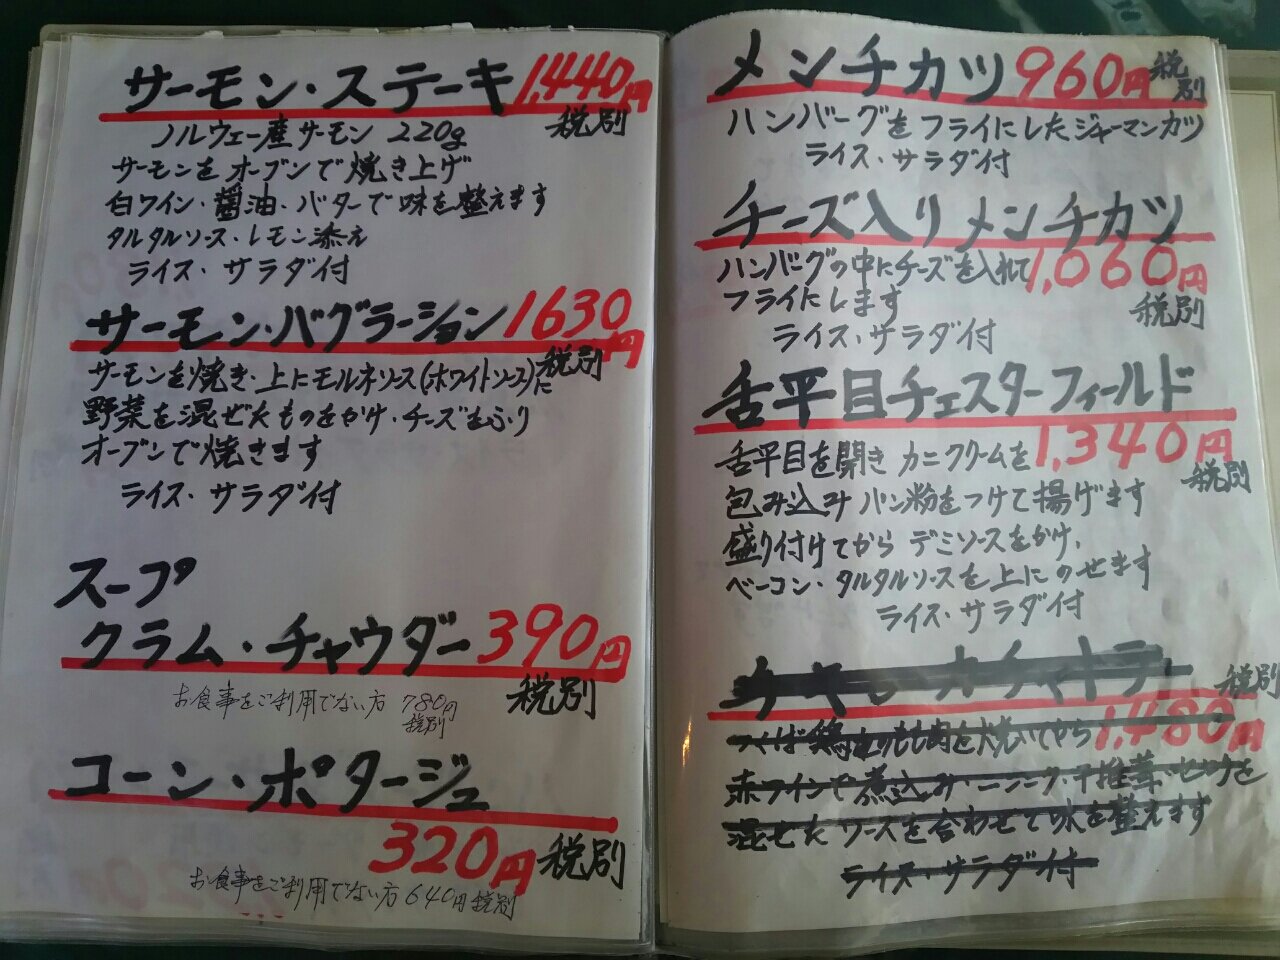 サーモン・ステーキ 1,440円
税別
ノルウェー産サーモン 220g
サーモンをオーブンで焼き上げ
白ワイン・醤油・バターで味を整えます
タルタルソース・レモン添え
ライス・サラダ付
サーモン・バグラーション 1630円
税別
サーモンを焼き・上にモルネソース(ホワイトソース)に
野菜を混ぜたものをかけ・チーズをふり
オーブンで焼きます
ライス・サラダ付
スープ
クラム・チャウダー 390円
税別
お食事をご利用でない方 780円
税別
コーン・ポタージュ
320円 税別
お食事をご利用でない方 640円 税別
メンチカツ 960円 税別
ハンバーグをフライにしたジャーマンカツ
ライス・サラダ付
チーズ入りメンチカツ
ハンバーグの中にチーズを入れて 1,060円
フライにします
税別
ライス・サラダ付
舌平目チェスターフィールド
1,340円
舌平目を開きカニクリームを
税別
包み込みパン粉をつけて揚げます
盛り付けてからデミソースをかけ、
ベーコン・タルタルソースを上にのせます
ライス・サラダ付
チキン・カチャトラ
税別
つくば鶏もも肉を焼いてから 1,480円
赤ワインで煮込み・ニンニク・干椎茸・セロリを
混ぜたソースを合わせて味を整えます
ライス・サラダ付